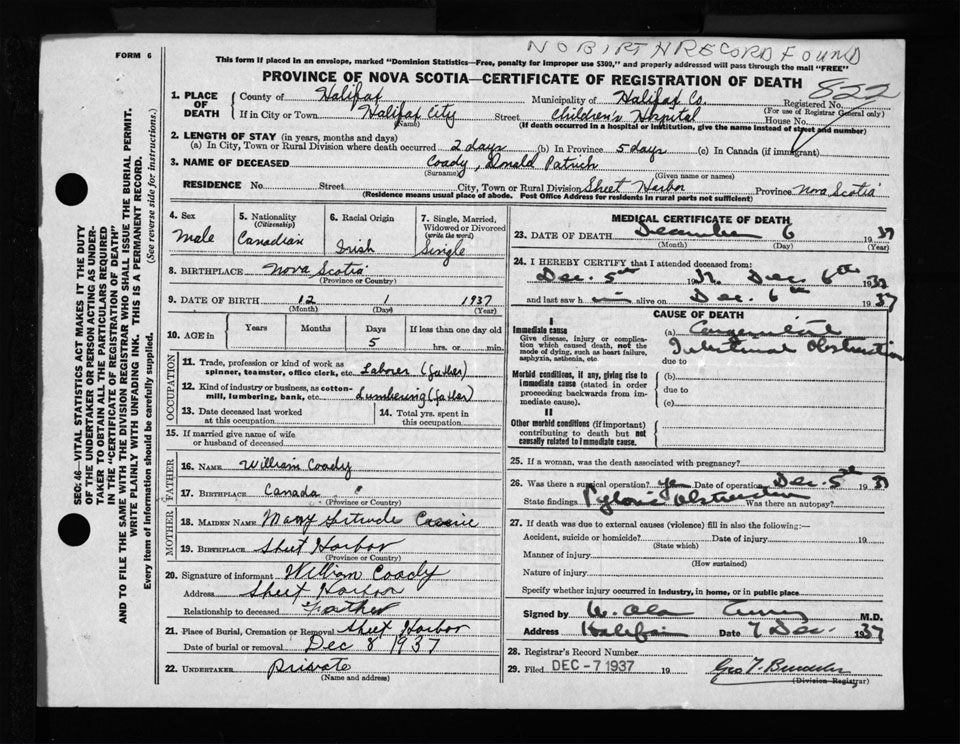 NO BIRTH RECORD FOUND
FORM 6
This form if placed in an envelope, marked "Dominion Statistics—Free, penalty for improper use $300," and properly addressed will pass through the mail "FREE"
PROVINCE OF NOVA SCOTIA—CERTIFICATE OF REGISTRATION OF DEATH
822
1. PLACE OF DEATH
County of Halifax Municipality of Halifax Co. Registered No.
(For use of Registrar General only)
If in City or Town Halifax City Street Children's Hospital House No.
(Name) (If death occurred in a hospital or institution, give the name instead of street and number)
2. LENGTH OF STAY (in years, months and days)
(a) In City, Town or Rural Division where death occurred 2 days (b) In Province 5 days (c) In Canada (if immigrant)
3. NAME OF DECEASED Coady, Donald Patrick
(Surname) (Given name or names)
RESIDENCE No. Street City, Town or Rural Division Sheet Harbor Province Nova Scotia
(Residence means usual place of abode. Post Office Address for residents in rural parts not sufficient)
SEC. 46—VITAL STATISTICS ACT MAKES IT THE DUTY
OF THE UNDERTAKER OR PERSON ACTING AS UNDER-
TAKER TO OBTAIN ALL THE PARTICULARS REQUIRED
IN THE "CERTIFICATE OF REGISTRATION OF DEATH"
AND TO FILE THE SAME WITH THE DIVISION REGISTRAR WHO SHALL ISSUE THE BURIAL PERMIT.
WRITE PLAINLY WITH UNFADING INK. THIS IS A PERMANENT RECORD.
Every item of information should be carefully supplied. (See reverse side for instructions.)
4. Sex
Male
5. Nationality
(Citizenship)
Canadian
6. Racial Origin
Irish
7. Single, Married,
Widowed or Divorced
(write the word)
Single
8. BIRTHPLACE Nova Scotia
(Province or Country)
9. DATE OF BIRTH 12 1 1937
(Month) (Day) (Year)
10. AGE in
Years Months Days If less than one day old
5 hrs. or min.
OCCUPATION
11. Trade, profession or kind of work as
spinner, teamster, office clerk, etc. Laborer (father)
12. Kind of industry or business, as cotton-
mill, lumbering, bank, etc. Lumbering (father)
13. Date deceased last worked
at this occupation
14. Total yrs. spent in
this occupation
15. If married give name of wife
or husband of deceased
FATHER
16. NAME William Coady
17. BIRTHPLACE Canada "
(Province or Country)
MOTHER
18. MAIDEN NAME Mary Gertrude
19. BIRTHPLACE Sheet Harbor
(Province or Country)
20. Signature of informant William Coady
Address Sheet Harbor
Relationship to deceased Father
21. Place of Burial, Cremation or Removal Sheet Harbor
Date of burial or removal Dec 8 1937
22. UNDERTAKER private
(Name and address)
MEDICAL CERTIFICATE OF DEATH
23. DATE OF DEATH December 6 1937
(Month) (Day) (Year)
24. I HEREBY CERTIFY that I attended deceased from:
Dec. 5th 1937 Dec 6th 1937
and last saw him alive on Dec. 6th 1937
CAUSE OF DEATH
I
Immediate cause
Give disease, injury or complica-
tion which caused death, not the
mode of dying, such as heart failure,
asphyxia, asthenia, etc.
(a) Congenital
Intestinal Obstruction
due to
Morbid conditions, if any, giving rise to
immediate cause (stated in order
proceeding backwards from im-
mediate cause).
(b)
due to
(c)
II
Other morbid conditions (if important)
contributing to death but not
causally related to immediate cause.
25. If a woman, was the death associated with pregnancy?
26. Was there a surgical operation? Yes Date of operation Dec. 5th 1937
State findings Pyloric Obstruction Was there an autopsy?
27. If death was due to external causes (violence) fill in also the following:—
Accident, suicide or homicide? Date of injury 19
(State which)
Manner of injury
(How sustained)
Nature of injury
Specify whether injury occurred in industry, in home, or in public place
Signed by M.D.
Address Halifax Date 7 Dec. 1937
28. Registrar's Record Number
29. Filed DEC -7 1937 19
(Division Registrar)